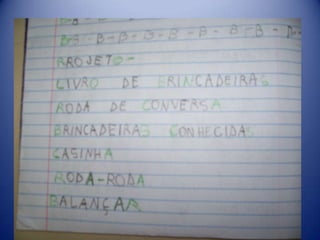 BS - B - B - B - B - B - B - B -
PROJETO -
LIVRO DE BRINCADEIRAS
RODA DE CONVERSA
BRINCADEIRAS CONHECIDAS
CASINHA
RODA-RODA
BALANÇAR